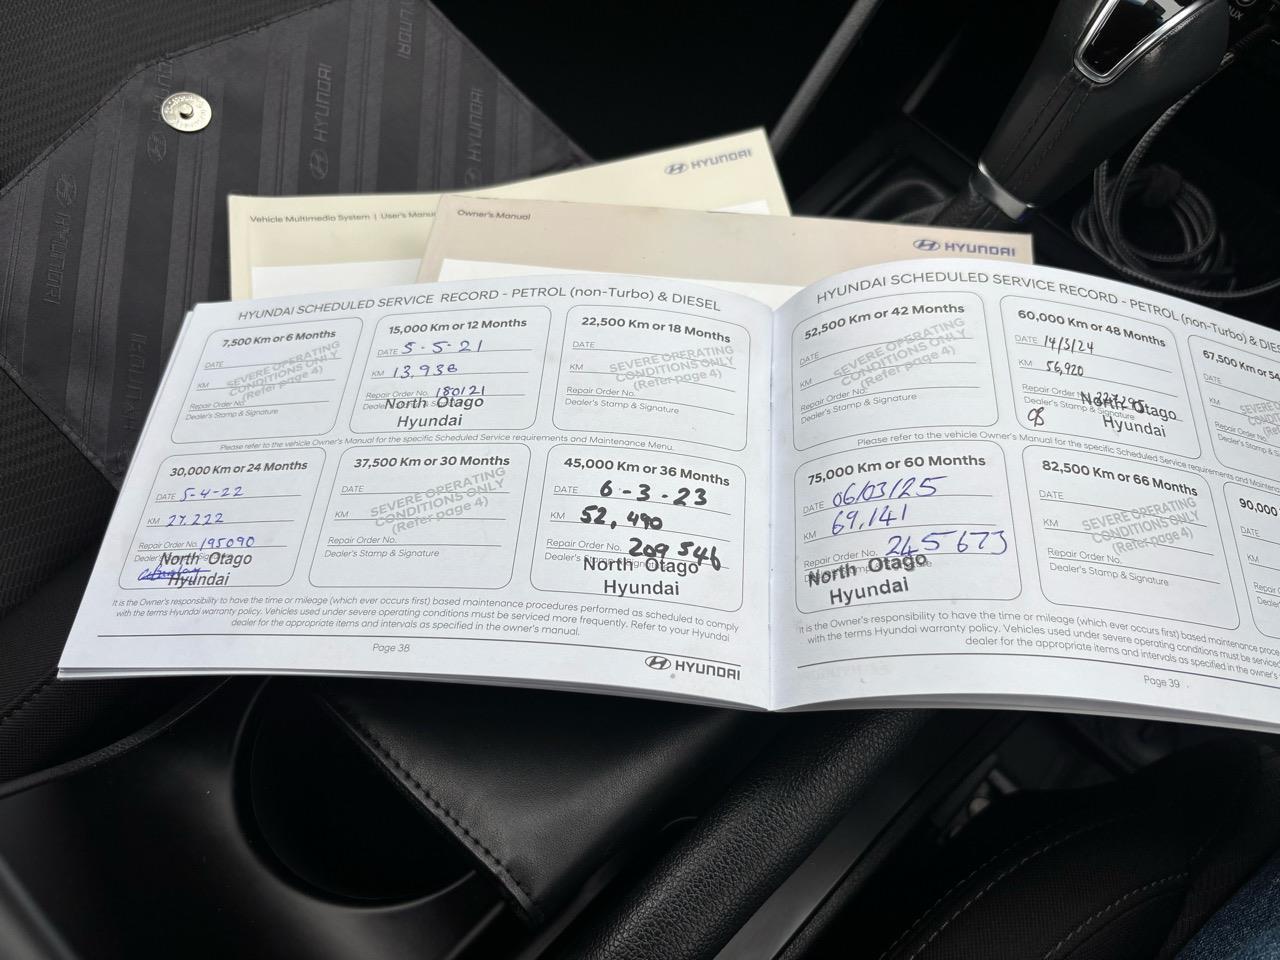 HYUNDAI
HYUNDAI
HYUNDAI
HYUNDAI
HYUNDAI
Vehicle Multimedia System | User's Manu
Owner's Manual
HYUNDAI
HYUNDAI SCHEDULED SERVICE RECORD - PETROL (non-Turbo) & DIESEL
7,500 Km or 6 Months
DATE
KM
SEVERE OPERATING
CONDITIONS ONLY
(Refer page 4)
Repair Order No.
Dealer's Stamp & Signature
15,000 Km or 12 Months
DATE 5-5-21
KM 13,938
Repair Order No. 180121
Dealer's Stamp & Signature
North Otago
Hyundai
22,500 Km or 18 Months
DATE
KM
SEVERE OPERATING
CONDITIONS ONLY
(Refer page 4)
Repair Order No.
Dealer's Stamp & Signature
Please refer to the vehicle Owner's Manual for the specific Scheduled Service requirements and Maintenance Menu.
30,000 Km or 24 Months
DATE 5-4-22
KM 27,222
Repair Order No. 195090
North Otago
Hyundai
37,500 Km or 30 Months
DATE
KM
SEVERE OPERATING
CONDITIONS ONLY
(Refer page 4)
Repair Order No.
Dealer's Stamp & Signature
45,000 Km or 36 Months
DATE 6-3-23
KM 52,490
Repair Order No. 209546
Dealer's Stamp & Signature
North Otago
Hyundai
It is the Owner's responsibility to have the time or mileage (which ever occurs first) based maintenance procedures performed as scheduled to comply
with the terms Hyundai warranty policy. Vehicles used under severe operating conditions must be serviced more frequently. Refer to your Hyundai
dealer for the appropriate items and intervals as specified in the owner's manual.
Page 38
HYUNDAI
HYUNDAI SCHEDULED SERVICE RECORD - PETROL (non-Turbo) & DIES
52,500 Km or 42 Months
DATE
KM
SEVERE OPERATING
CONDITIONS ONLY
(Refer page 4)
Repair Order No.
Dealer's Stamp & Signature
60,000 Km or 48 Months
DATE 14/3/24
KM 56,920
Repair Order No.
Dealer's Stamp & Signature
North Otago
Hyundai
67,500 Km or 54
DATE
KM
Repair Order No.
Dealer's Stamp & Signature
Please refer to the vehicle Owner's Manual for the specific Scheduled Service requirements and Maintenance
75,000 Km or 60 Months
DATE 06/03/25
KM 69,141
Repair Order No. 245673
North Otago
Hyundai
82,500 Km or 66 Months
DATE
KM
SEVERE OPERATING
CONDITIONS ONLY
(Refer page 4)
Repair Order No.
Dealer's Stamp & Signature
90,000
DATE
KM
Repair
Dealer
It is the Owner's responsibility to have the time or mileage (which ever occurs first) based maintenance proce
with the terms Hyundai warranty policy. Vehicles used under severe operating conditions must be serviced
dealer for the appropriate items and intervals as specified in the owner's
Page 39